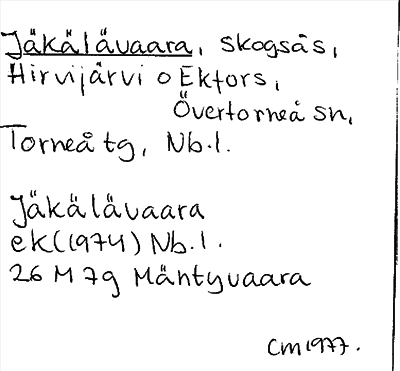 Jäkälävaara, skogsås,
Hirvijärvi o Ektors,
Övertorneå sn,
Torneå tg, Nb.l.
Jäkälävaara
ek(1974) Nb.l.
26 M 7g Mäntyvaara
CM1977.